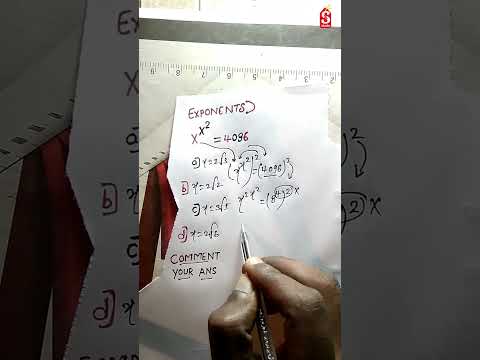 S
EXPONENTS
x^x^2 = 4096
a) x=2√3 (x^x^2)^2 = (4096)^2
b) x=2√2
c) x=3√5 (x^2)^x^2 = (8^4)^2
d) x=2√6
COMMENT
YOUR ANS